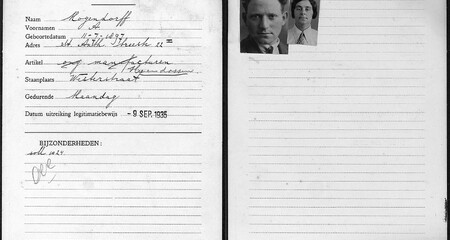 Naam Mogendorff
Voornamen A.
Geboortedatum 11-7-1897
Adres str. 22 III
Artikel manufacturen
Staanplaats Westerstraat
Gedurende Maandag
Datum uitreiking legitimatiebewijs - 9 SEP. 1935
BIJZONDERHEDEN: